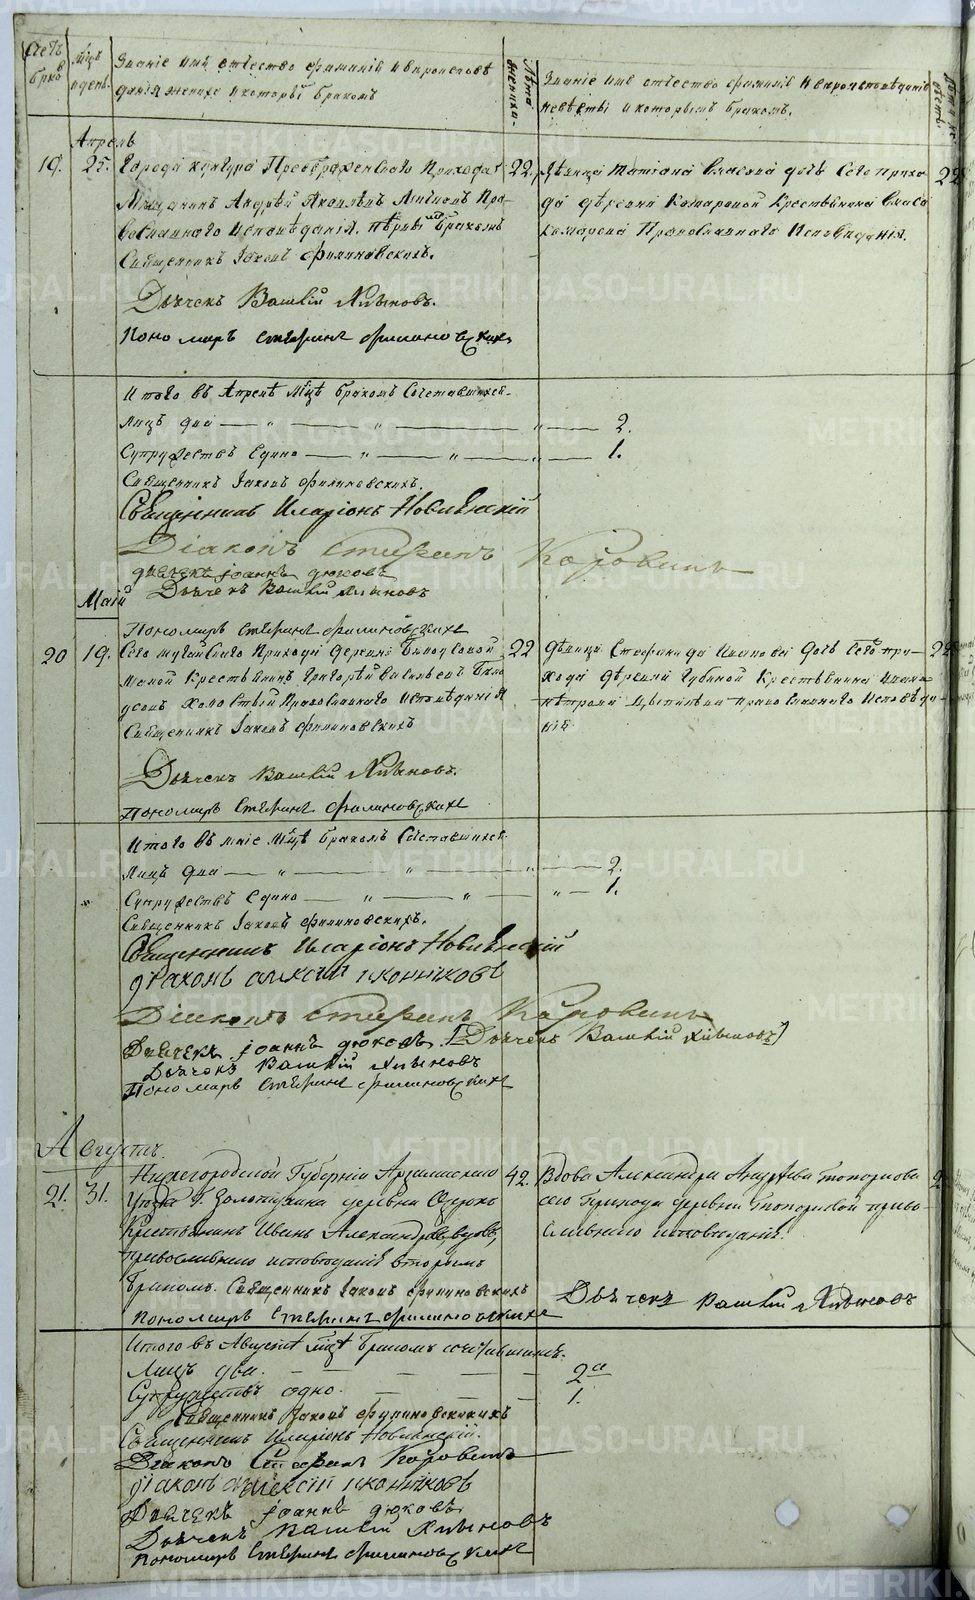 Счетъ браковъ
Мѣцъ и день
Званіе имя отчество фамилія и вѣроисповѣ
даніе жениха и которымъ бракомъ
Лѣта жениха
Званіе имя отчество фамилія и вѣроисповѣданіе
невѣсты и которымъ бракомъ.
Апрель
19. 25. Города Кунгура Преображенскаго Прихода
Мѣщанинъ Андрей Яковлевъ Пра-
вославнаго Исповѣданія. Первымъ Бракомъ
Священникъ Іаковъ Филиновскихъ.
22.
Дѣвица Татіана Власова дочь Сего прихо
да деревни Комаровой Крестьянина Власа
Комарова Православнаго Исповѣданія.
22
Дьячекъ Василій Хлыновъ.
Пономарь Стефанъ Филиновскихъ
Итого въ Апрелѣ Мѣцѣ бракомъ Сочетавшихся.
Лицъ два — " — " — " — 2.
Супружествъ Едино — " — " — " — 1.
Священникъ Іаковъ Филиновскихъ.
Священникъ Иларіонъ
Діаконъ Стефанъ Коровинъ
дьячекъ Іоаннъ дюковъ
Дьячекъ Василій Хлыновъ
Маій
Пономарь Стефанъ Филиновскихъ
20 19. Сего Прихода Деревни
Крестьянинъ Григорій Васильевъ
Холостый Православнаго Исповѣданія
Священникъ Іаковъ Филиновскихъ
22
Дѣвица Стефанида Иванова дочь Сего при-
хода Деревни Губиной Крестьянина Ивана
Петрова Православнаго Исповѣда-
нія
22
Дьячекъ Василій Хлыновъ.
Пономарь Стефанъ Филиновскихъ
Итого въ маіе Мѣцѣ бракомъ Сочетавшихся
Лицъ два — " — " — " — 2.
Супружествъ Едино — " — " — " — 1.
Священникъ Іаковъ Филиновскихъ.
Священникъ Иларіонъ
діаконъ алексій иконниковъ
Діаконъ Стефанъ Коровинъ
Дьячекъ іоаннъ дюковъ. [Дьячекъ Василій Хлыновъ]
Дьячекъ Василій Хлыновъ
Пономарь Стефанъ Филиновскихъ
Августъ.
21. 31. Нижегородской Губерніи Арзамаскаго
Уезда Г. деревни
Крестьянинъ Иванъ
православнаго исповѣданія вторымъ
бракомъ. Священникъ Іаковъ Филиновскихъ
Пономарь Стефанъ Филиновскихъ
42.
Вдова Александра Андреева Топоркова
сего Прихода деревни Топорковой право-
славнаго исповѣданія.
Дьячекъ Василій Хлыновъ
Итого въ Августѣ Мѣцѣ бракомъ сочетавшихся.
Лицъ два. — — — — 2
Супружествъ одно. — — — 1.
Священникъ Іаковъ Филиновскихъ
Священникъ Иларіонъ
Діаконъ Стефанъ Коровинъ
діаконъ алексій иконниковъ
Дьячекъ іоаннъ дюковъ
Дьячекъ Василій Хлыновъ
Пономарь Стефанъ Филиновскихъ
METRIKI.GASO-URAL.RU